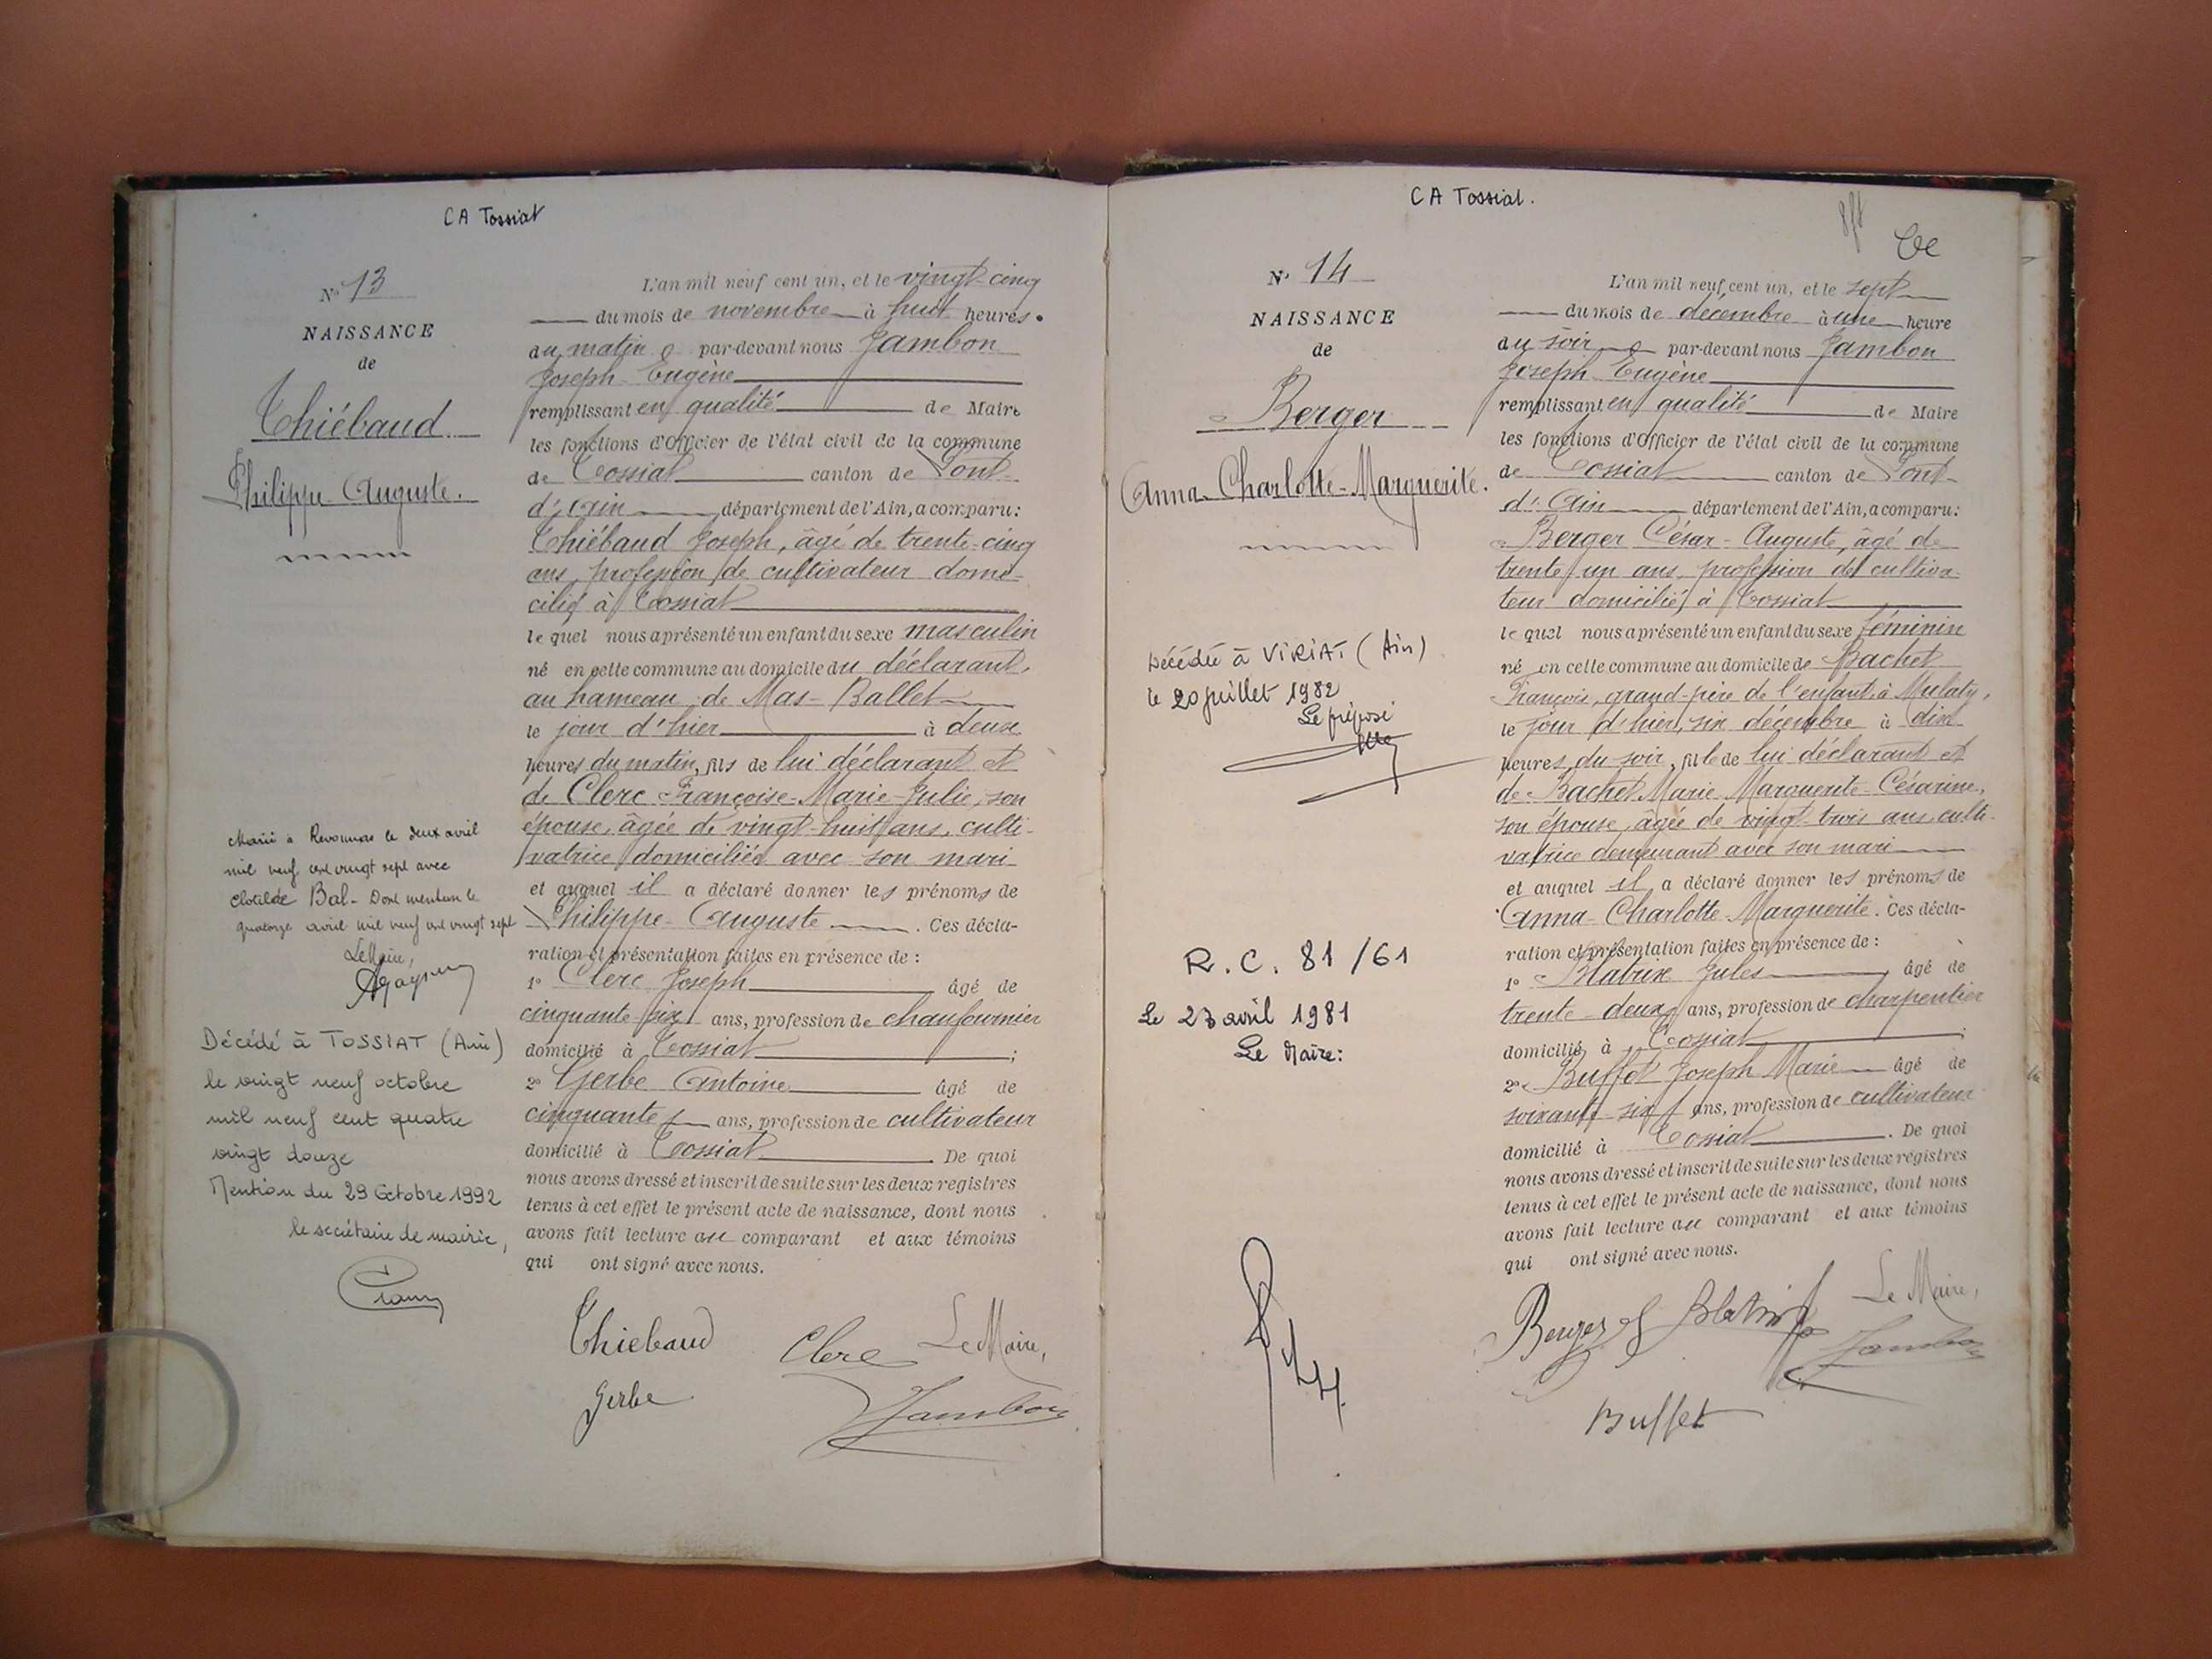 CA Tossiat
N° 13
NAISSANCE
de
Thiébaud
Philippe-Auguste.
Marié à Revonnas le deux avril
mil neuf cent vingt sept avec
Clotilde Bal - Dont mention le
quatorze avril mil neuf cent vingt sept
Le Maire,
Décédé à TOSSIAT (Ain)
le vingt neuf octobre
mil neuf cent quatre
vingt douze
Mention du 29 Octobre 1992
le secrétaire de mairie,
L'an mil neuf cent un, et le vingt-cinq
du mois de novembre à huit heures
du matin par-devant nous Jambon
Joseph-Eugène
remplissant en qualité de Maire
les fonctions d'Officier de l'état civil de la commune
de Tossiat canton de Pont-
d'Ain département de l'Ain, a comparu:
Thiébaud Joseph, âgé de trente-cinq
ans, profession de cultivateur domi-
cilié à Tossiat
lequel nous a présenté un enfant du sexe masculin
né en cette commune au domicile du déclarant,
au hameau de Mas-Ballet
le jour d'hier à deux
heures du matin, fils de lui déclarant et
de Clerc Françoise-Marie-Julie, son
épouse, âgée de vingt-huit ans, culti-
vatrice domiciliée avec son mari
et auquel il a déclaré donner les prénoms de
Philippe-Auguste. Ces décla-
ration et présentation faites en présence de :
1° Clerc Joseph âgé de
cinquante-six ans, profession de chaufournier
domicilié à Tossiat ;
2° Gerbe Antoine âgé de
cinquante ans, profession de cultivateur
domicilié à Tossiat. De quoi
nous avons dressé et inscrit de suite sur les deux registres
tenus à cet effet le présent acte de naissance, dont nous
avons fait lecture au comparant et aux témoins
qui ont signé avec nous.
Thiebaud Clerc Le Maire,
Gerbe Jambon
CA Tossiat.
N° 14
NAISSANCE
de
Berger
Anna-Charlotte-Marguerite.
Décédée à VIRIAT (Ain)
le 20 juillet 1982
Le préposé
R.C. 81/61
Le 23 avril 1981
Le Maire:
L'an mil neuf cent un, et le sept
du mois de décembre à une heure
du soir par-devant nous Jambon
Joseph-Eugène
remplissant en qualité de Maire
les fonctions d'Officier de l'état civil de la commune
de Tossiat canton de Pont-
d'Ain département de l'Ain, a comparu:
Berger César-Auguste, âgé de
trente un ans, profession de cultiva-
teur domicilié à Tossiat
lequel nous a présenté un enfant du sexe féminin
né en cette commune au domicile de Bachet
François, grand-père de l'enfant, à Mulaty,
le jour d'hier, six décembre à dix
heures du soir, fille de lui déclarant et
de Bachet Marie-Marguerite-Césarine,
son épouse, âgée de vingt-trois ans, culti-
vatrice demeurant avec son mari
et auquel il a déclaré donner les prénoms de
Anna-Charlotte-Marguerite. Ces décla-
ration et présentation faites en présence de :
1° Blatrix Jules, âgé de
trente-deux ans, profession de charpentier
domicilié à Tossiat ;
2° Buffet Joseph Marie âgé de
soixante-six ans, profession de cultivateur
domicilié à Tossiat. De quoi
nous avons dressé et inscrit de suite sur les deux registres
tenus à cet effet le présent acte de naissance, dont nous
avons fait lecture au comparant et aux témoins
qui ont signé avec nous.
Berger Blatrix Le Maire,
Jambon
Buffet